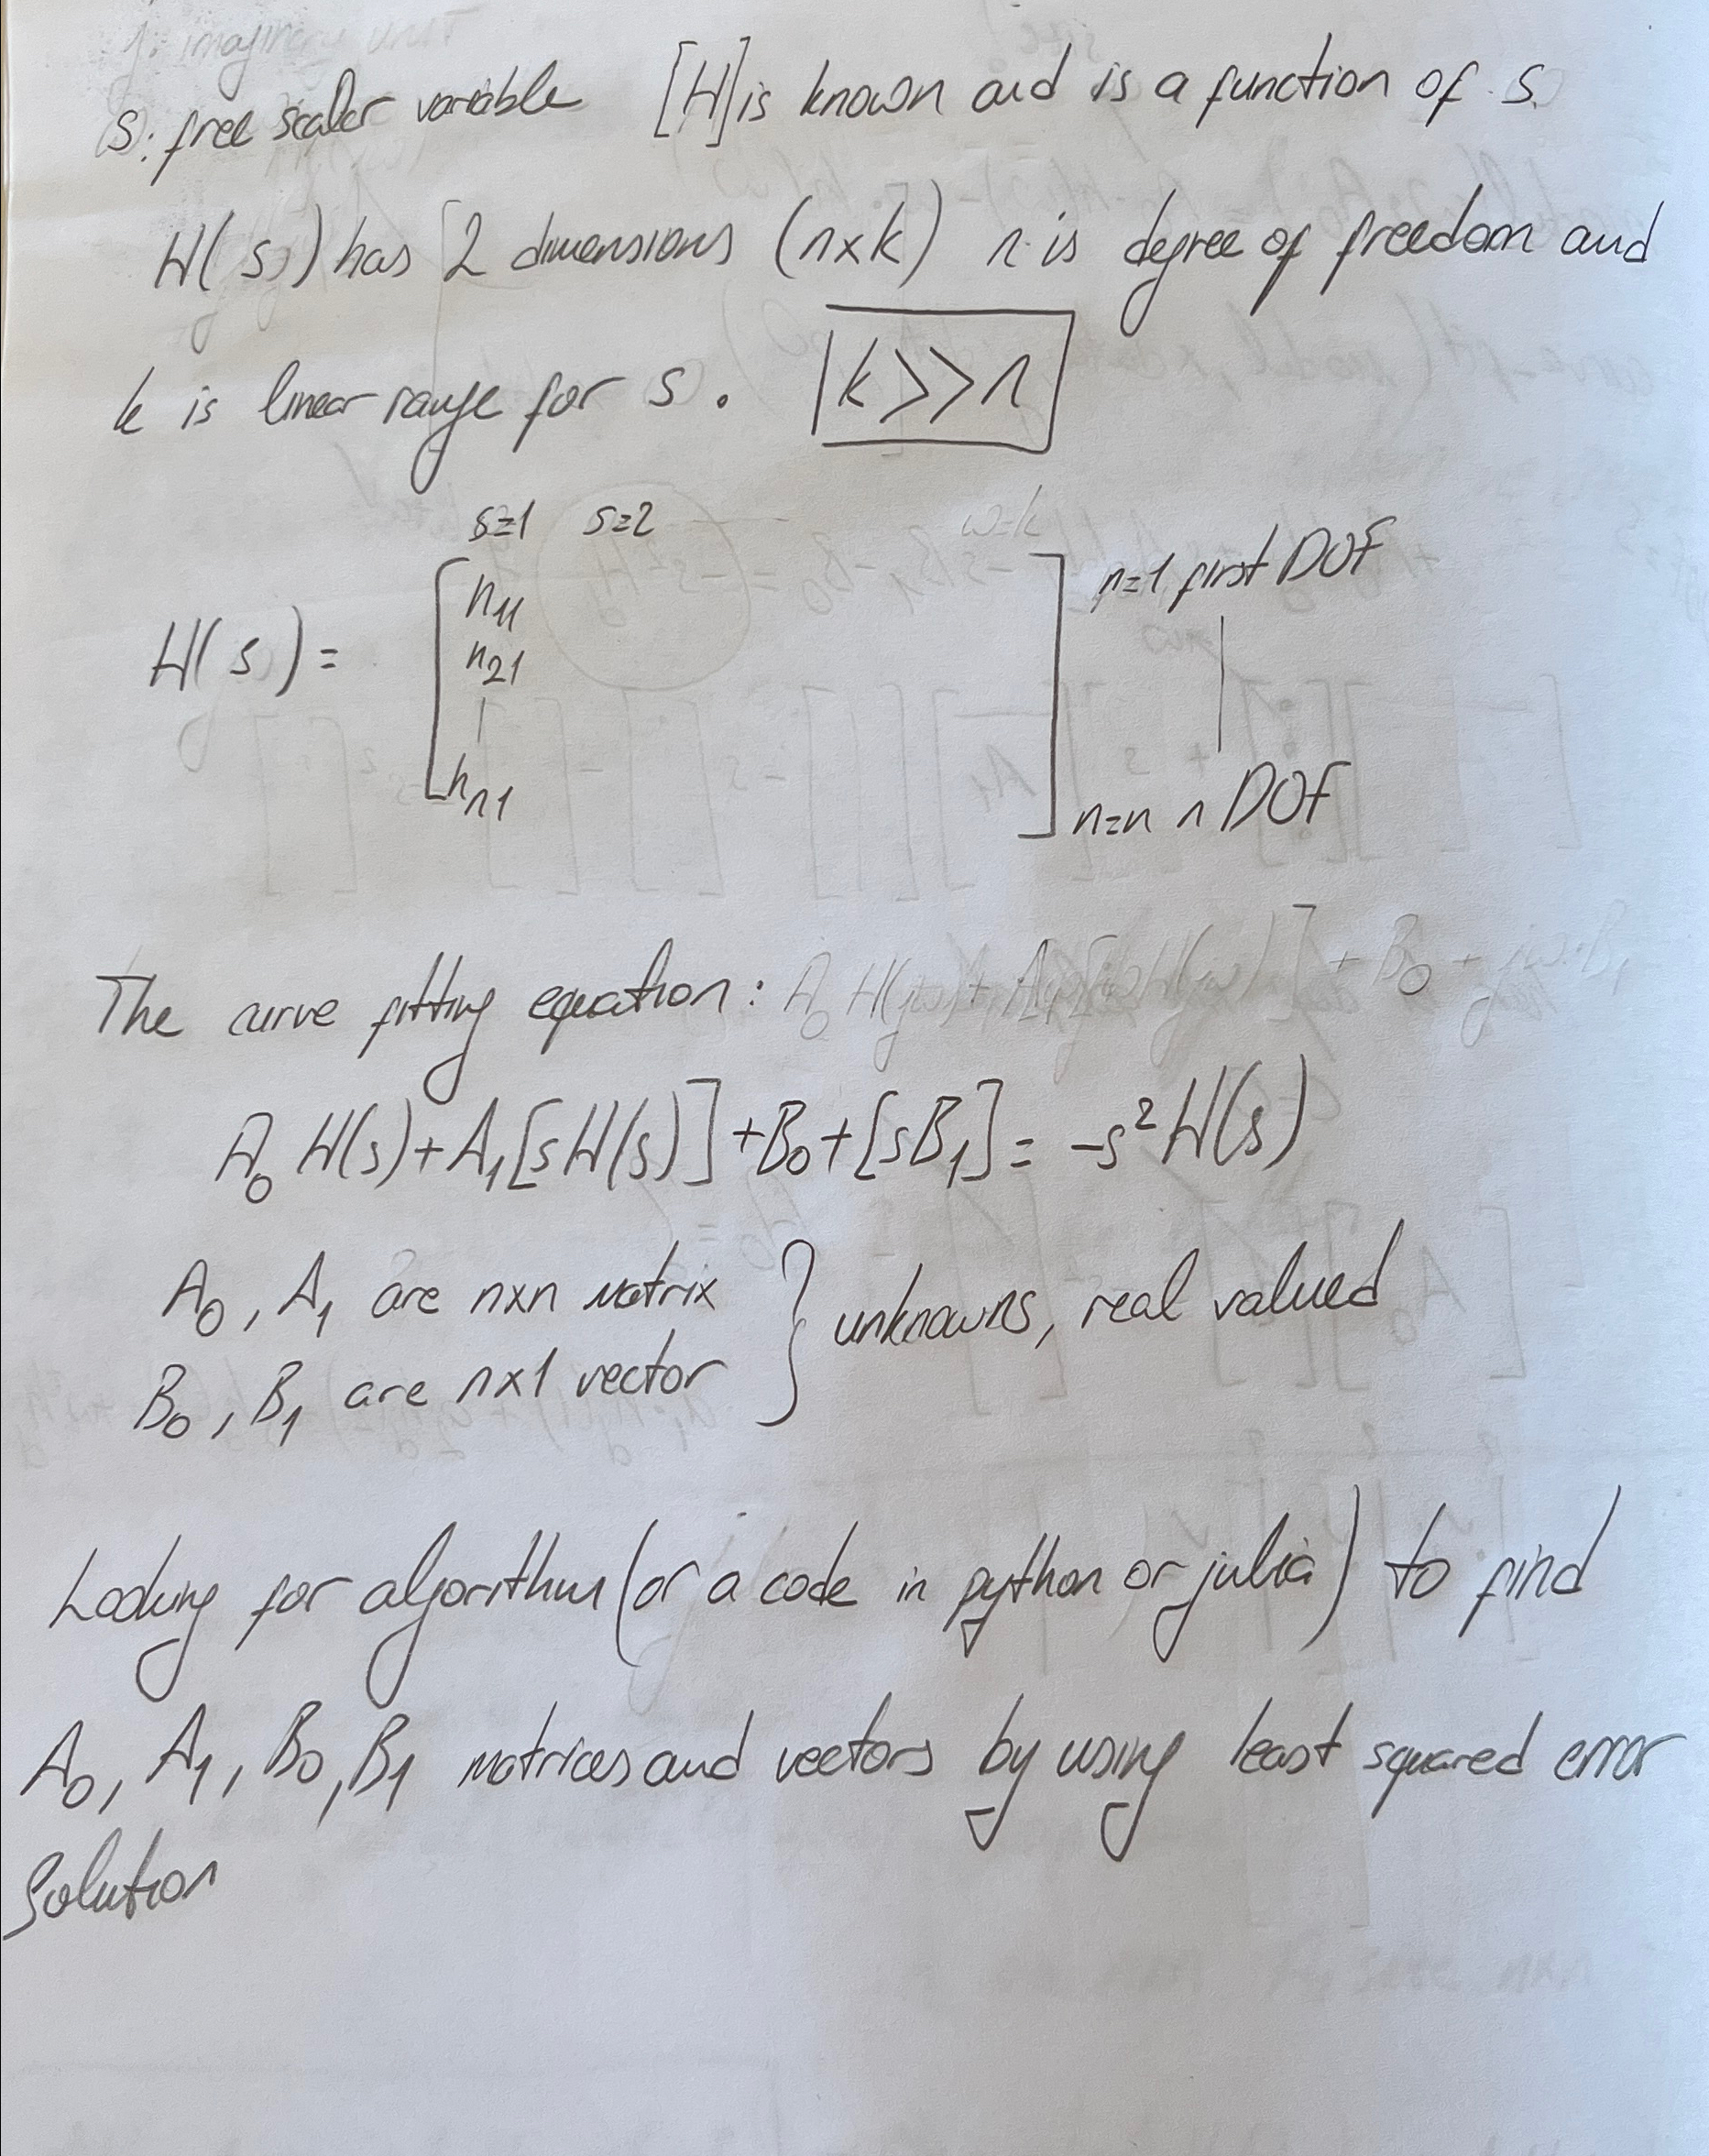 j: imaginary unit
s: free scaler variable [H] is known and is a function of s.
H(s) has 2 dimensions (nxk) n is degree of freedom and
k is linear range for s. |k>>n
s=1 s=2 w=k
H(s) = [ h11 h21 | hn1 ] n=1 first DOF | n=n n DOF
The curve fitting equation:
A0 H(s)+A1[sH(s)]+B0+[sB1]= -s²H(s)
A0, A1 are nxn matrix
B0, B1 are nx1 vector } unknowns, real valued
Looking for algorithm (or a code in python or julia) to find
A0, A1, B0, B1 matrices and vectors by using least squared error
Solution